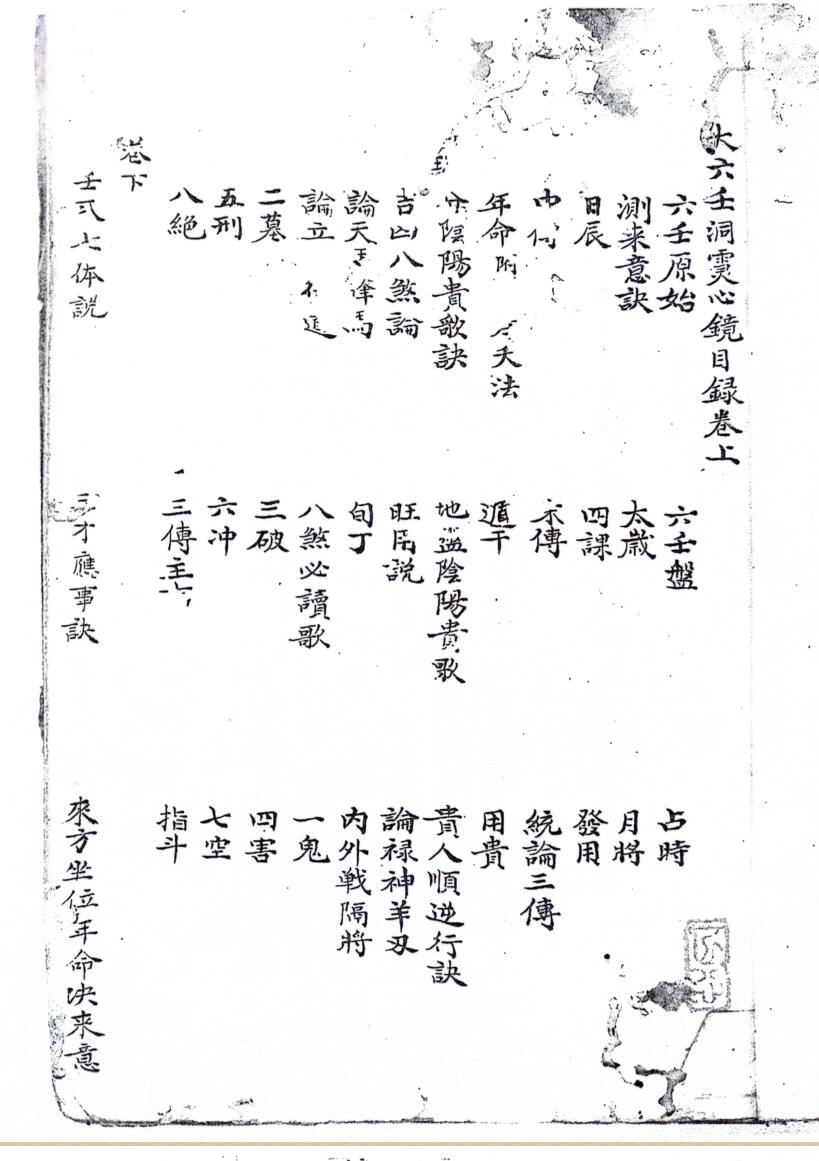 大六壬洞霛心鏡目録卷上
六壬原始 六壬盤 占時
測来意訣 太歲 月將
日辰 四課 發用
傳 統論三傳
年命附 法 遁干 用貴
陰陽貴歌訣 地 陰陽貴歌 貴人順逆行訣
吉凶八煞論 旺 説 論禄神羊刃
論天 馬 旬丁 内外戦隔將
論立 八煞必讀歌 一鬼
二墓 三破 四害
五刑 六冲 七空
八絶 三傳主 指斗
卷下
壬式七体説 三才應事訣 來方坐位年命决来意